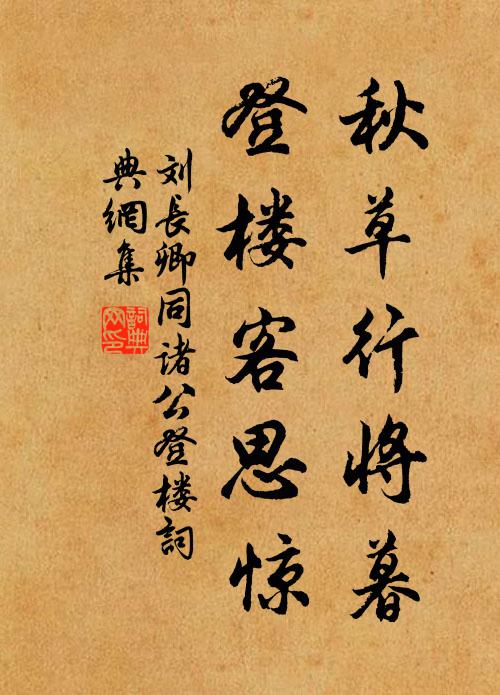 秋草行将暮
登楼客思惊
刘長卿同诸公登楼詞
典網集
詞典网印